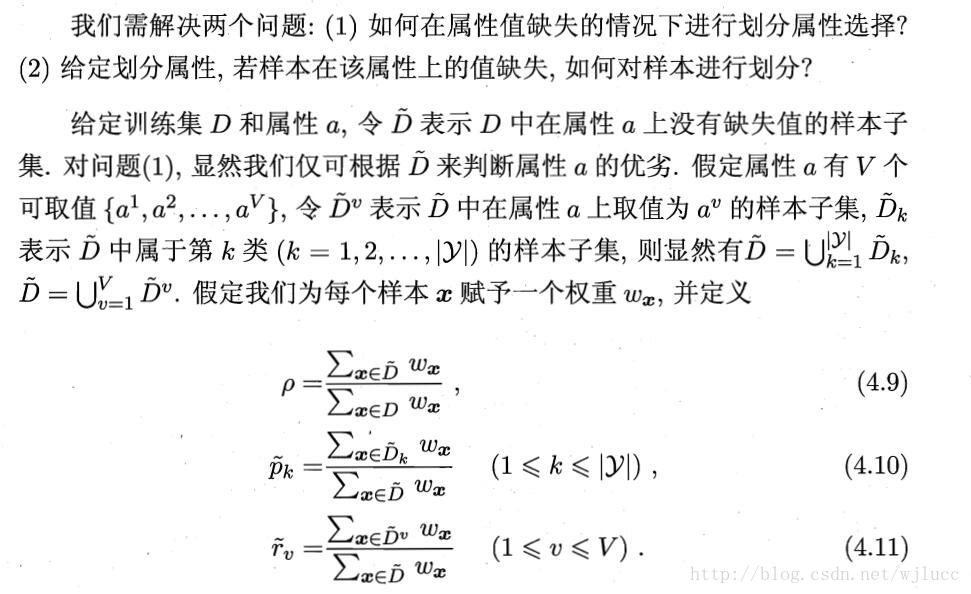 我们需解决两个问题: (1) 如何在属性值缺失的情况下进行划分属性选择?
(2) 给定划分属性, 若样本在该属性上的值缺失, 如何对样本进行划分?
给定训练集 D 和属性 a, 令 D̃ 表示 D 中在属性 a 上没有缺失值的样本子
集. 对问题(1), 显然我们仅可根据 D̃ 来判断属性 a 的优劣. 假定属性 a 有 V 个
可取值 {a¹, a², . . . , a^V}, 令 D̃^v 表示 D̃ 中在属性 a 上取值为 a^v 的样本子集, D̃_k
表示 D̃ 中属于第 k 类 (k = 1, 2, . . . , |𝒴|) 的样本子集, 则显然有 D̃ = ⋃_{k=1}^{|𝒴|} D̃_k,
D̃ = ⋃_{v=1}^{V} D̃^v. 假定我们为每个样本 𝒙 赋予一个权重 w_𝒙, 并定义
ρ = \frac{∑_{𝒙∈D̃} w_𝒙}{∑_{𝒙∈D} w_𝒙} , (4.9)
p̃_k = \frac{∑_{𝒙∈D̃_k} w_𝒙}{∑_{𝒙∈D̃} w_𝒙} (1 ⩽ k ⩽ |𝒴|) , (4.10)
r̃_v = \frac{∑_{𝒙∈D̃^v} w_𝒙}{∑_{𝒙∈D̃} w_𝒙} (1 ⩽ v ⩽ V) . (4.11)
http://blog.csdn.net/wjlucc